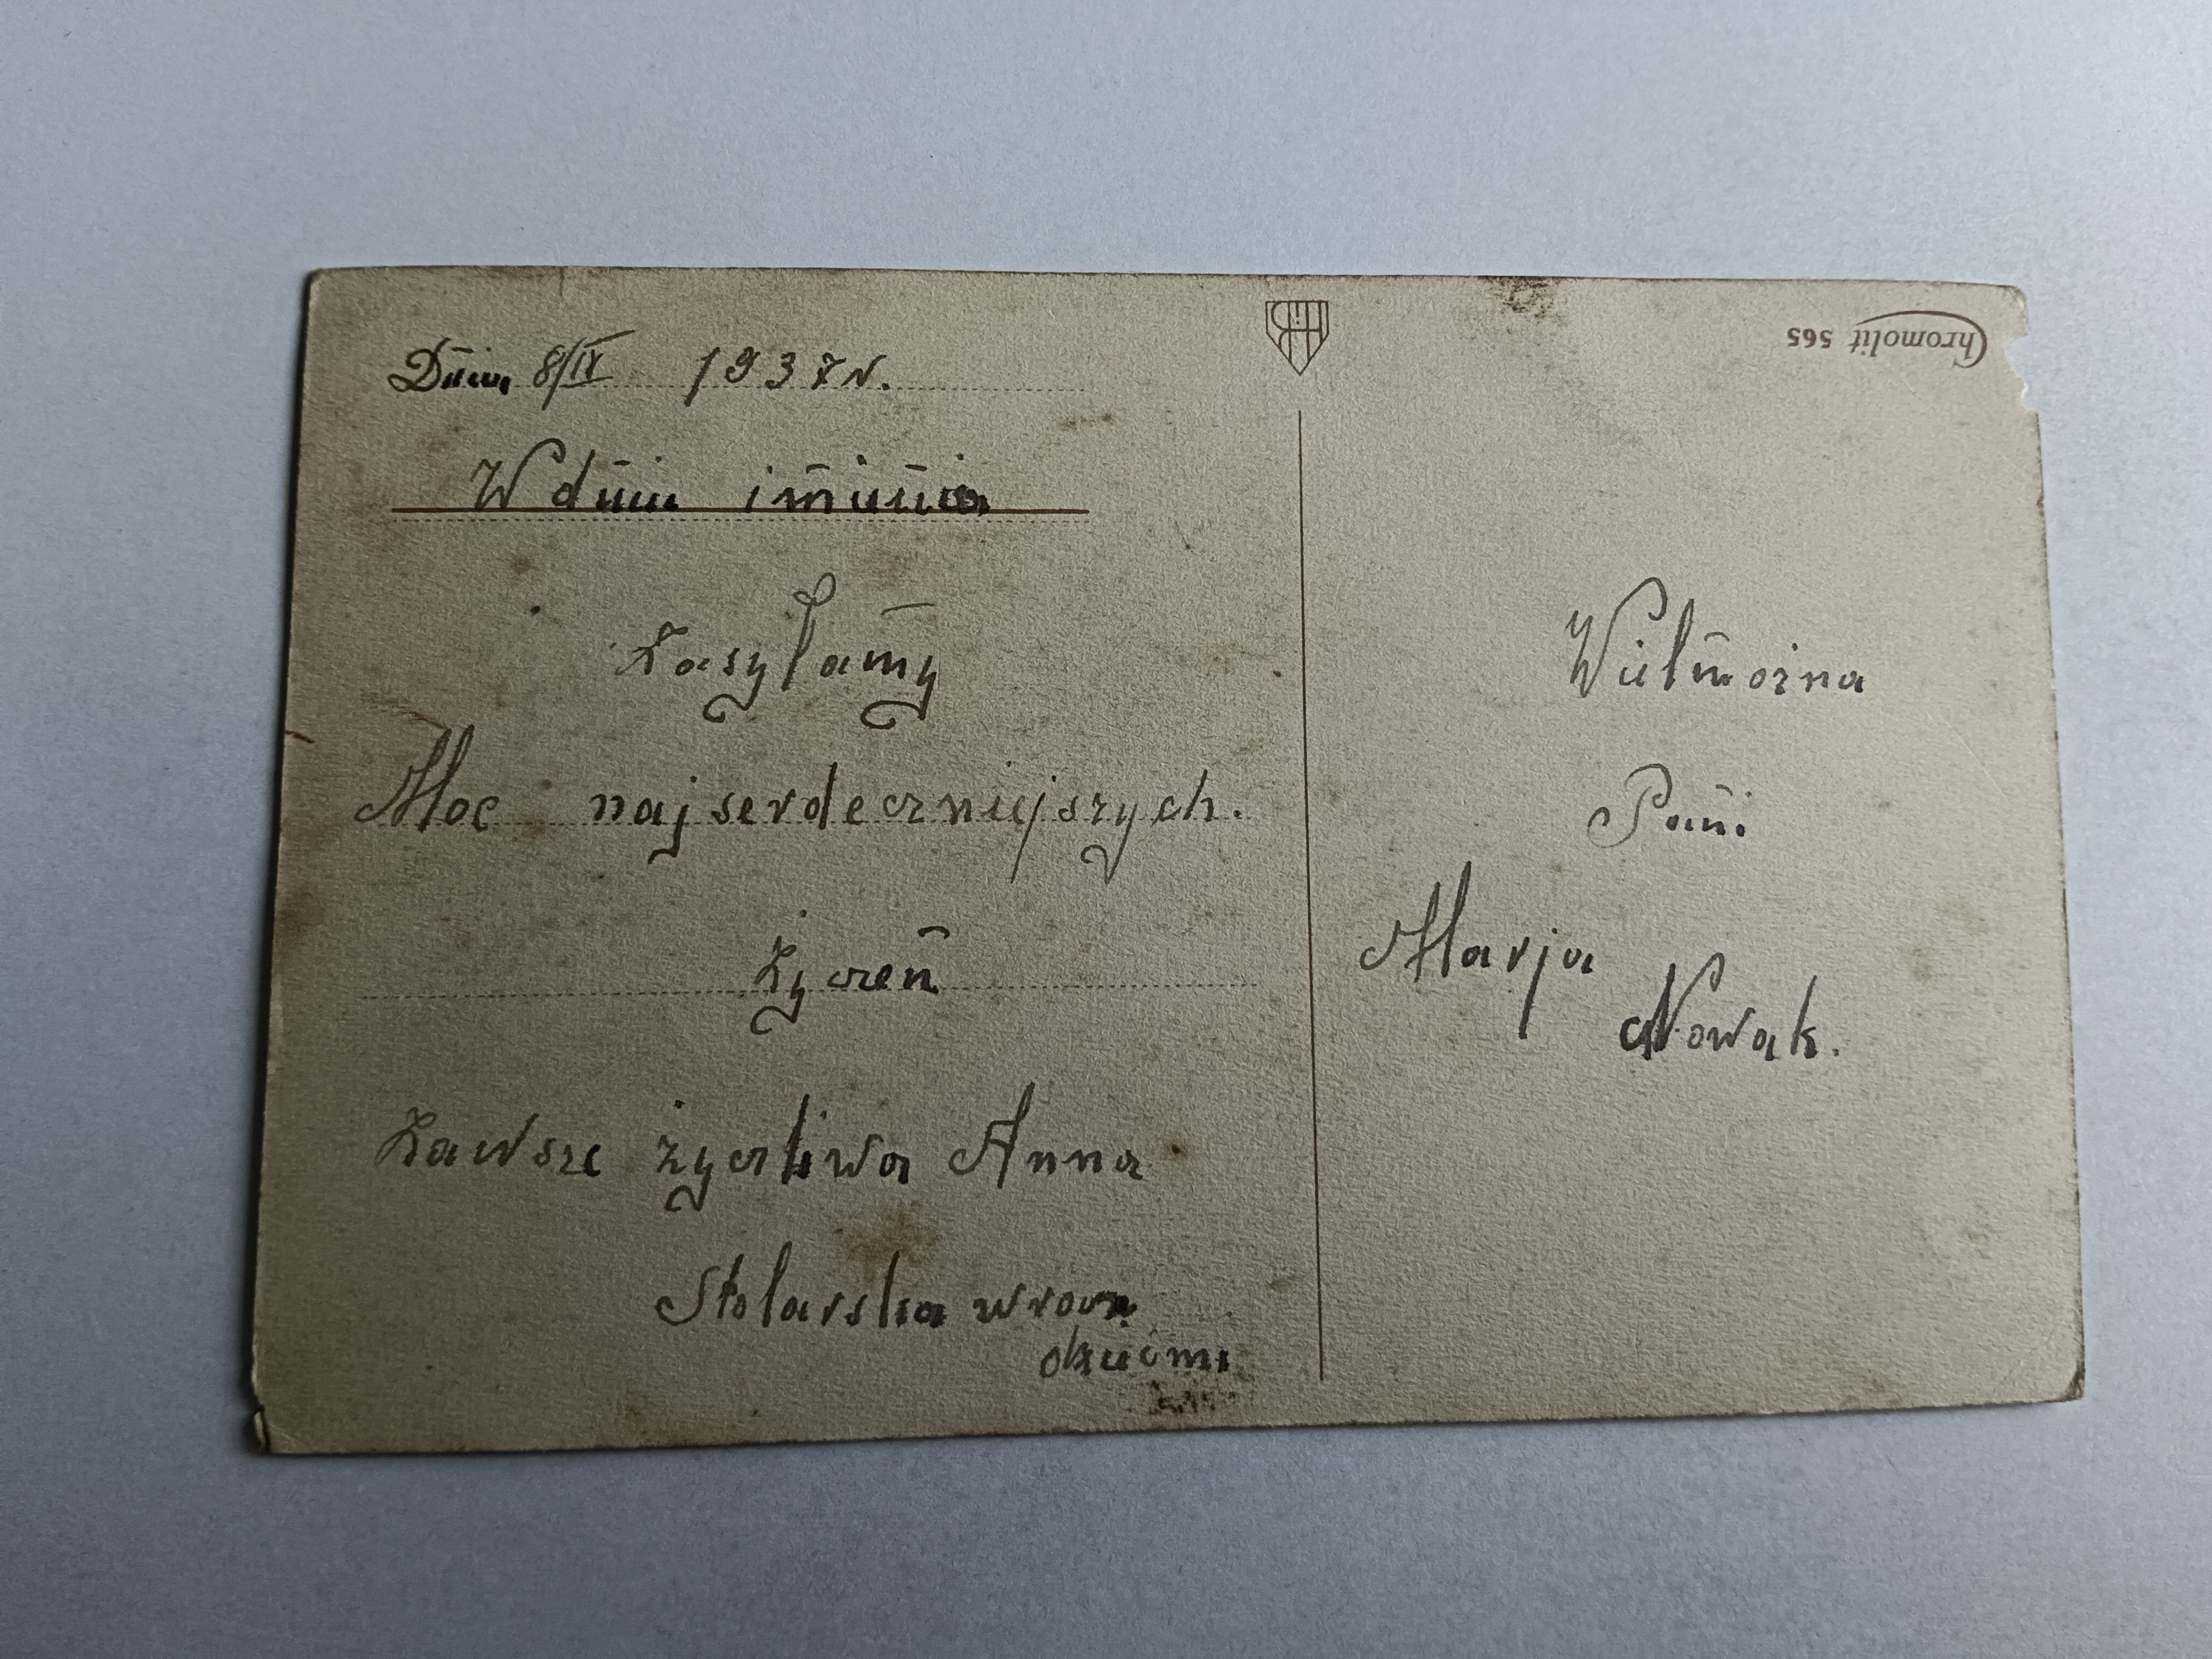 Dnia 8/IX 1937 r.
W dniu imienia
Zasyłamy
Moc najserdeczniejszych.
życzeń
Zawsze życzliwa Anna
Stolarska wraz
dziećmi
Wielmożna
Pani
Marja
Nowak.
Chromolit 565